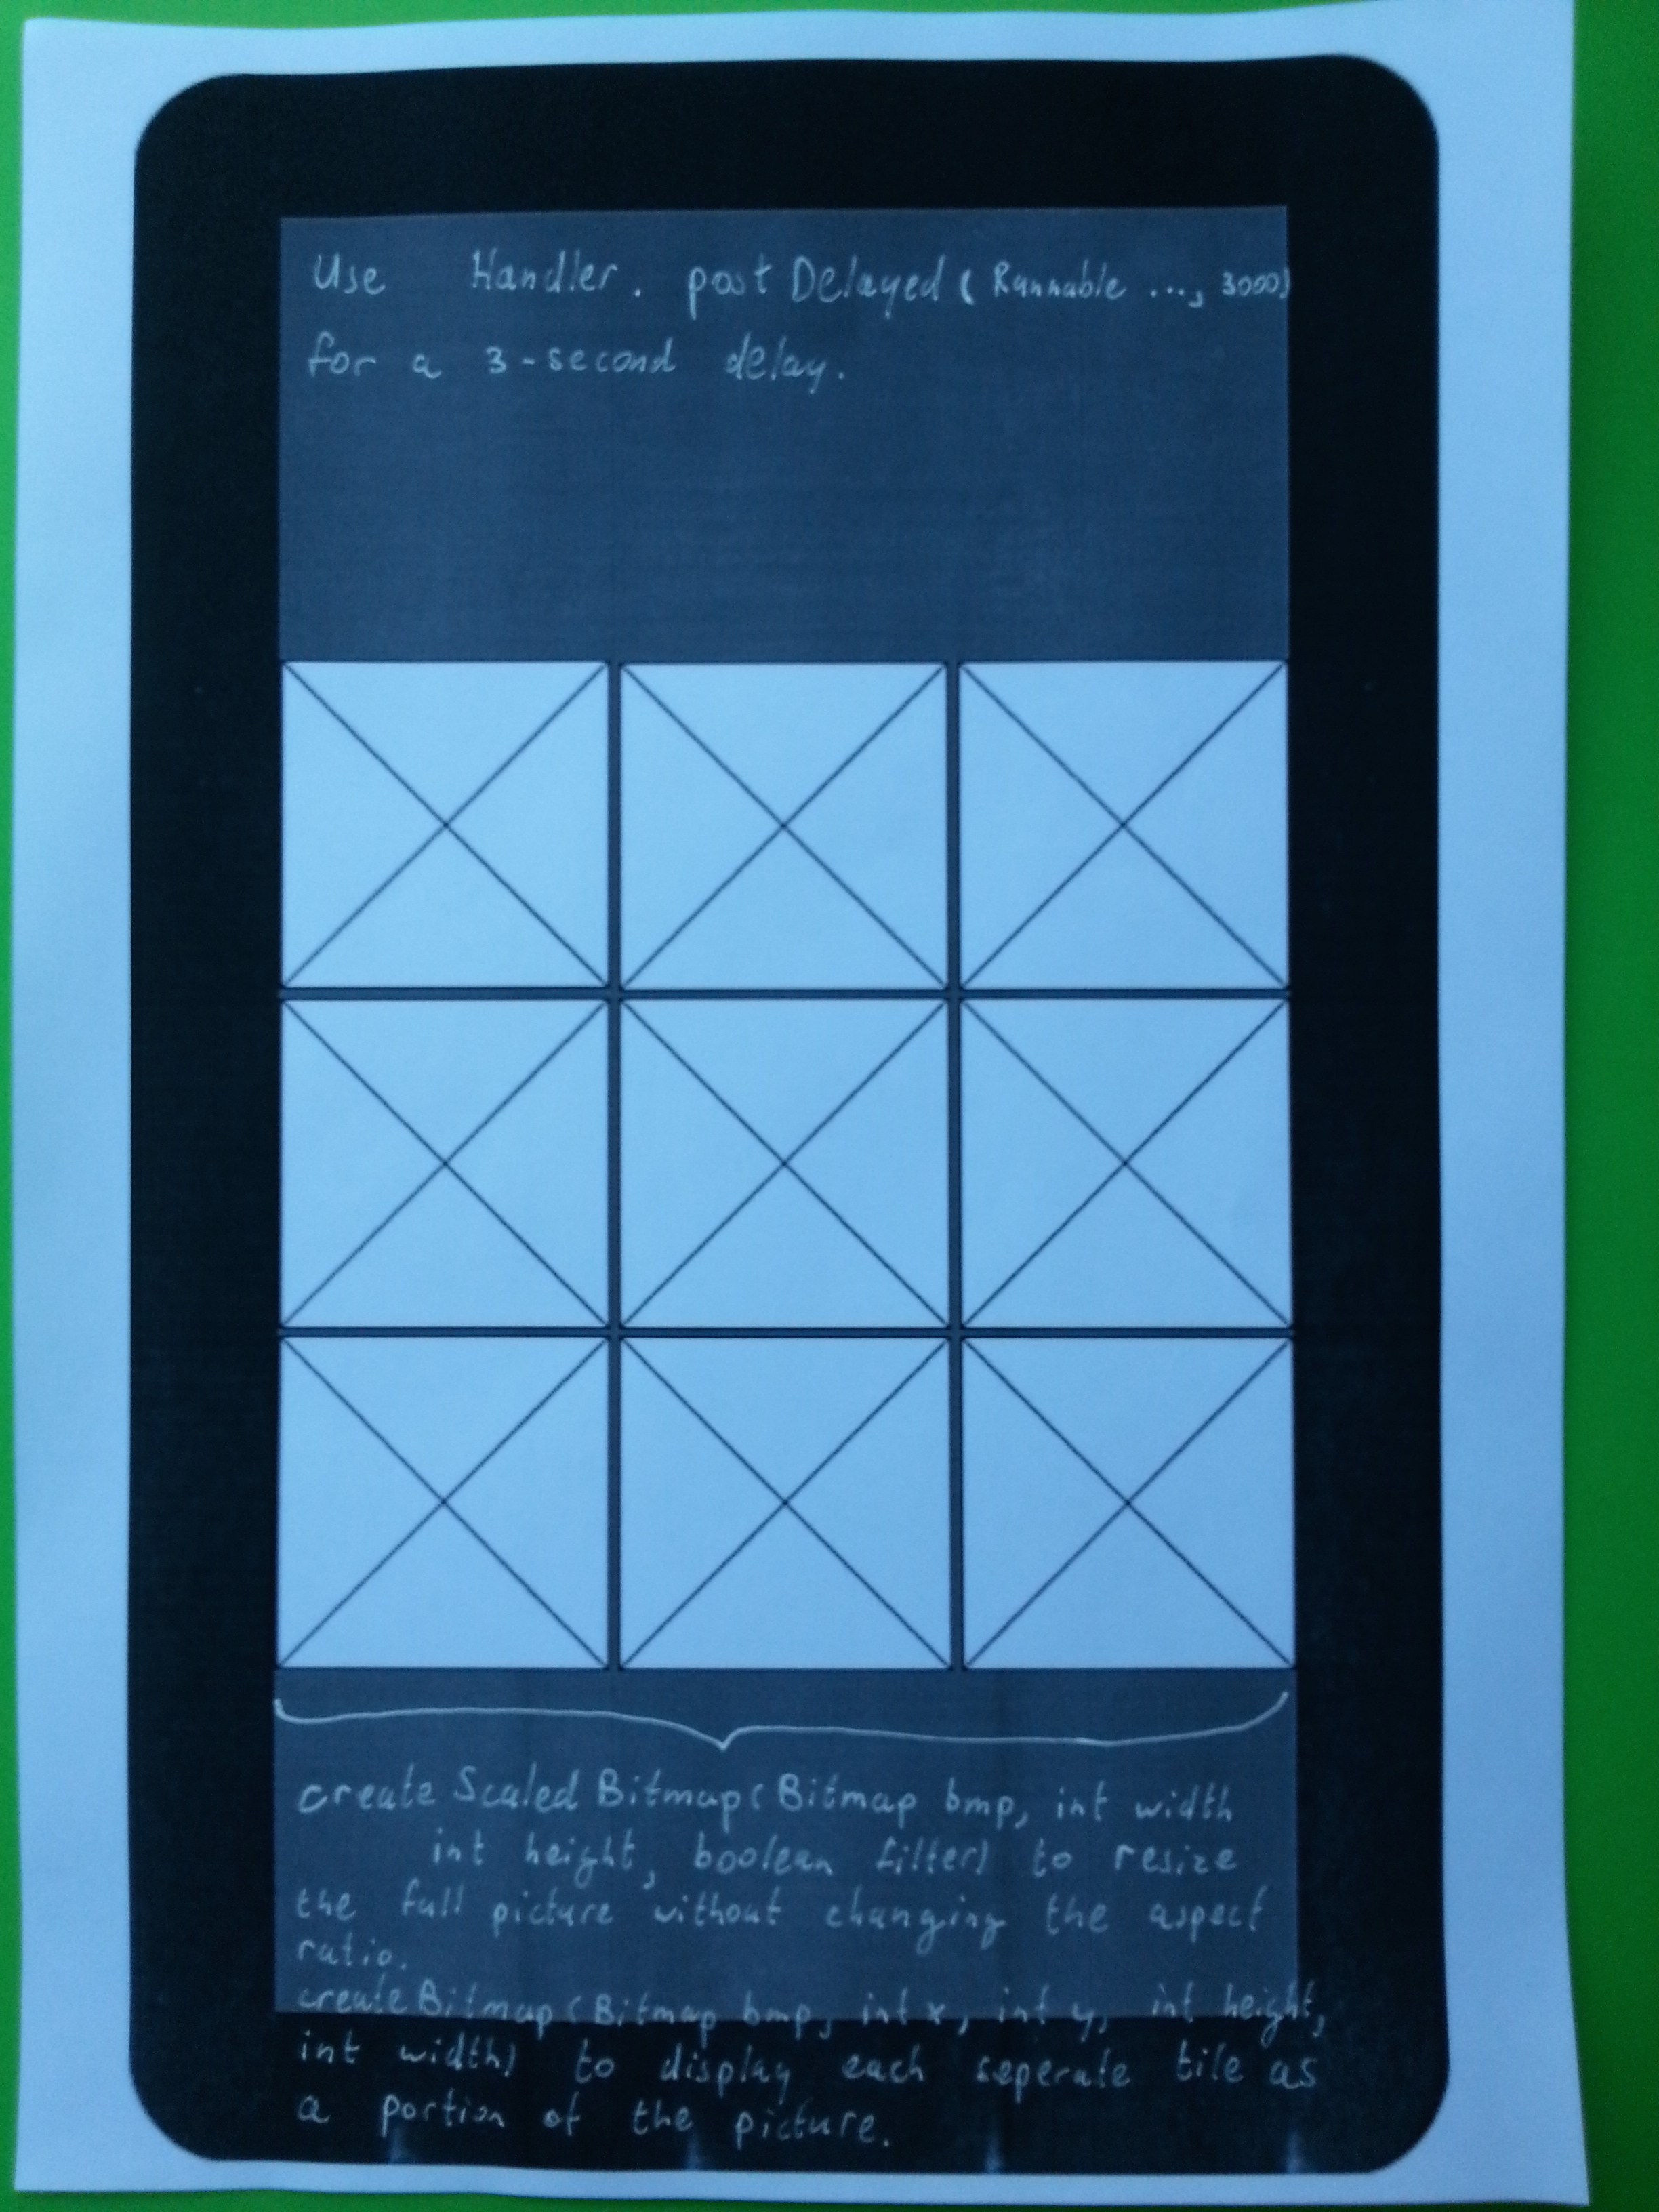 Use Handler. postDelayed (Runnable ..., 3000)
for a 3-second delay.
create Scaled Bitmap(Bitmap bmp, int width
int height, boolean filter) to resize
the full picture without changing the aspect
ratio.
createBitmap (Bitmap bmp, int x, int y, int height,
int width) to display each seperate tile as
a portion of the picture.